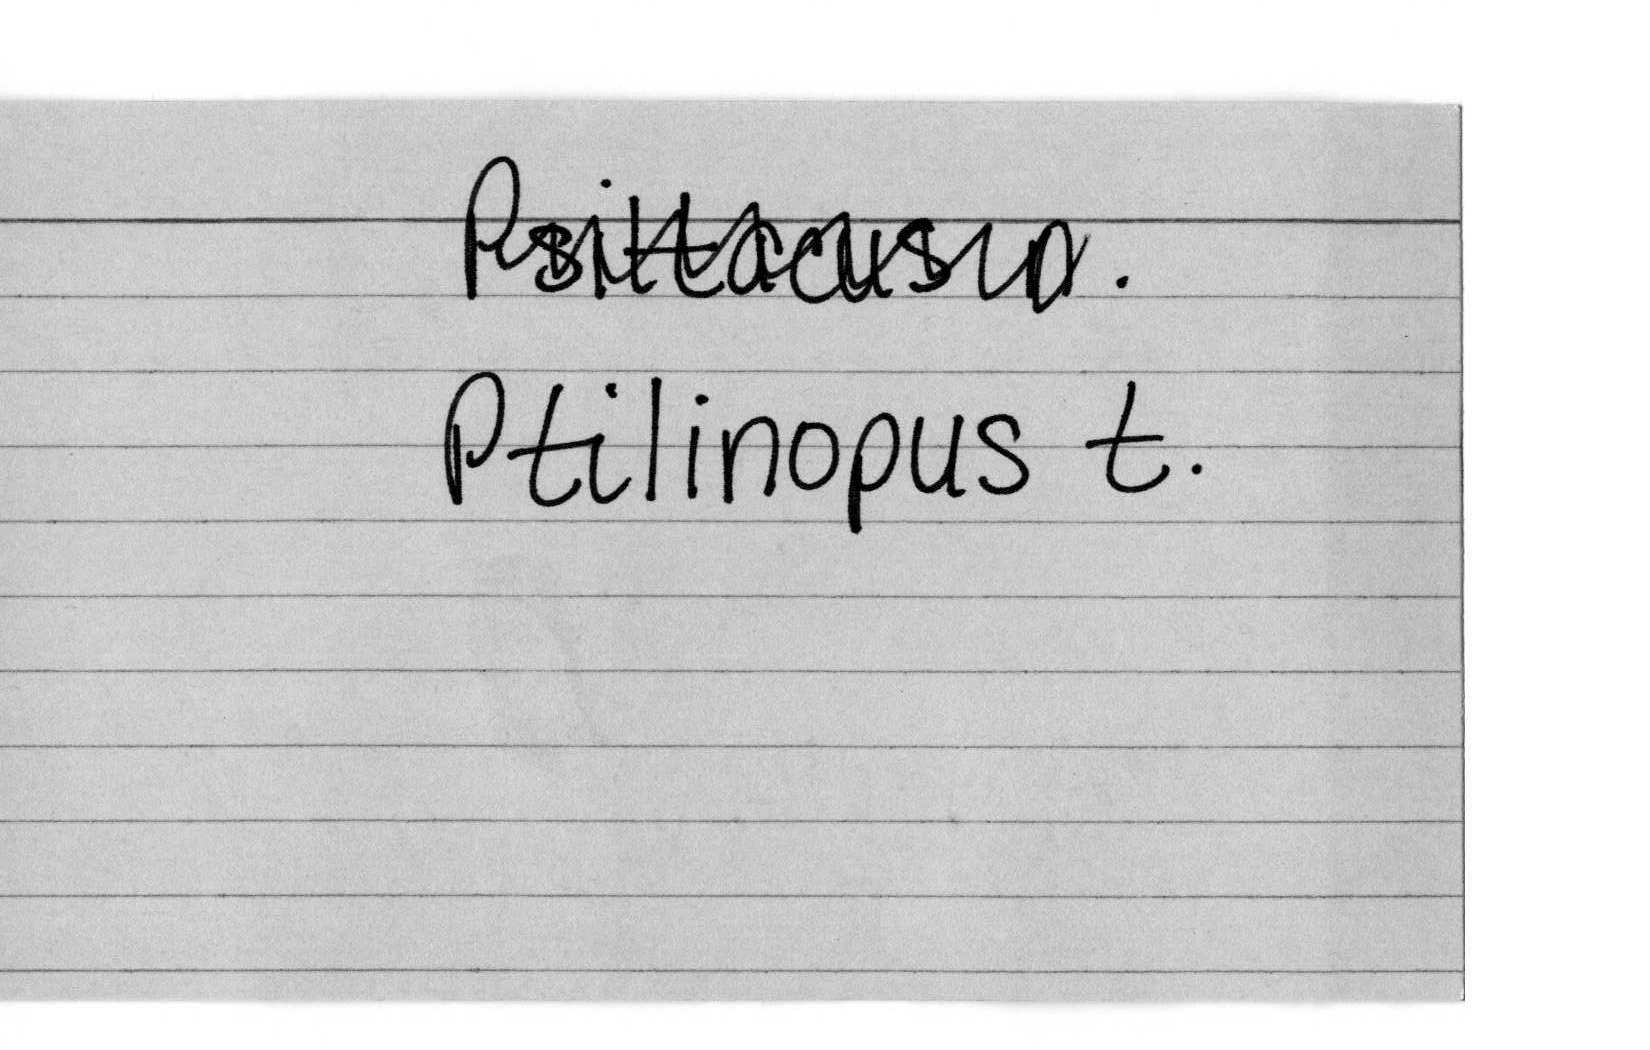 Psittacus
Ptilinopus t.